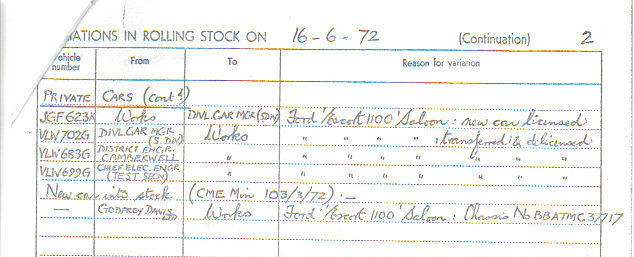 ATIONS IN ROLLING STOCK ON 16-6-72 (Continuation) 2
ehicle number From To Reason for variation
PRIVATE CARS (contd)
JGF 623K Works DIVL.GAR MGR (SDN) Ford 'Escort 1100' Saloon : new car licensed
VLW702G DIVL.GAR MGR (S.DIV) Works " " " " : transferred & delicensed
VLW683G DISTRICT ENGR. CAMBERWELL " " " " " " "
VLW699G CHIEF ELEC. ENGR (TEST SECN) " " " " " " "
New car into stock (CME Min 103/3/72) :-
— GODFREY DAVIS Works Ford 'Escort 1100' Saloon : Chassis No BBATMC 3/717